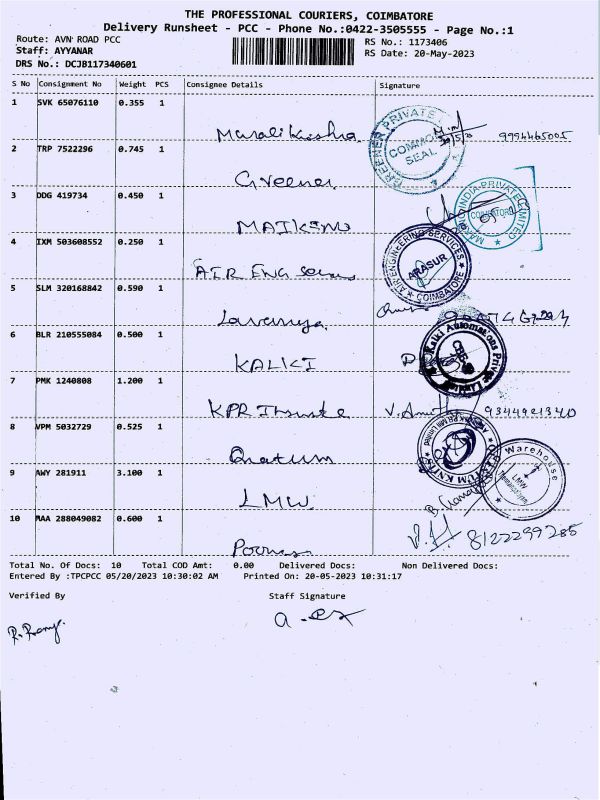 THE PROFESSIONAL COURIERS, COIMBATORE
Delivery Runsheet - PCC - Phone No.:0422-3505555 - Page No.:1
Route: AVN ROAD PCC
RS No.: 1173406
Staff: AYYANAR
RS Date: 20-May-2023
DRS No.: DCJB117340601
S No Consignment No Weight PCS Consignee Details Signature
1 SVK 65076110 0.355 1
Muralikrishna 9994465005
GREENER PRIVATE
COMMON SEAL
2 TRP 7522296 0.745 1
Greener
3 DDG 419734 0.450 1
INDIA PRIVATE LIMITED
COIMBATORE
4 IXM 503608552 0.250 1
AIR ENG
AIR ENGINEERING SERVICES
ARASUR
COIMBATORE
5 SLM 320168842 0.590 1
Lavanya
6 BLR 210555084 0.500 1
KALKI
Kalki Automations Private Limited
7 PMK 1240808 1.200 1
KPR 9344921340
8 VPM 5032729 0.525 1
Quatum
KNITS
9 AWY 281911 3.100 1
LMW
Warehouse
LMW
10 MAA 288049082 0.600 1
8122299285
Total No. Of Docs: 10 Total COD Amt: 0.00 Delivered Docs: Non Delivered Docs:
Entered By :TPCPCC 05/20/2023 10:30:02 AM Printed On: 20-05-2023 10:31:17
Verified By Staff Signature